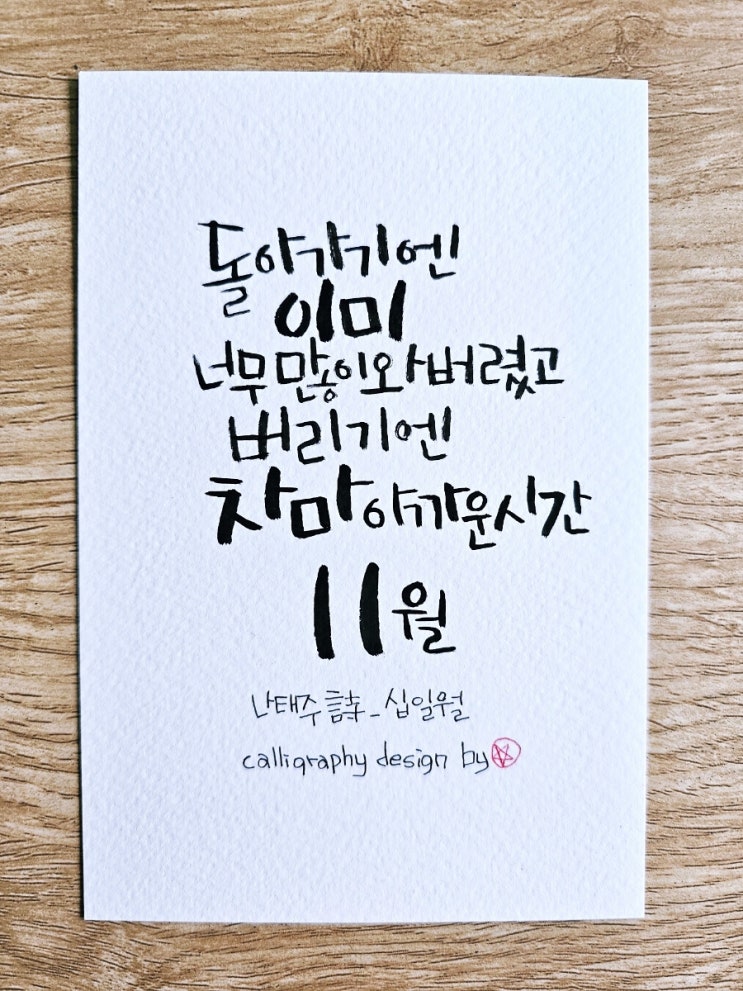 돌아가기엔
이미
너무 많이 와 버렸고
버리기엔
차마 아까운 시간
11월
나태주 詩_십일월
calligraphy design by